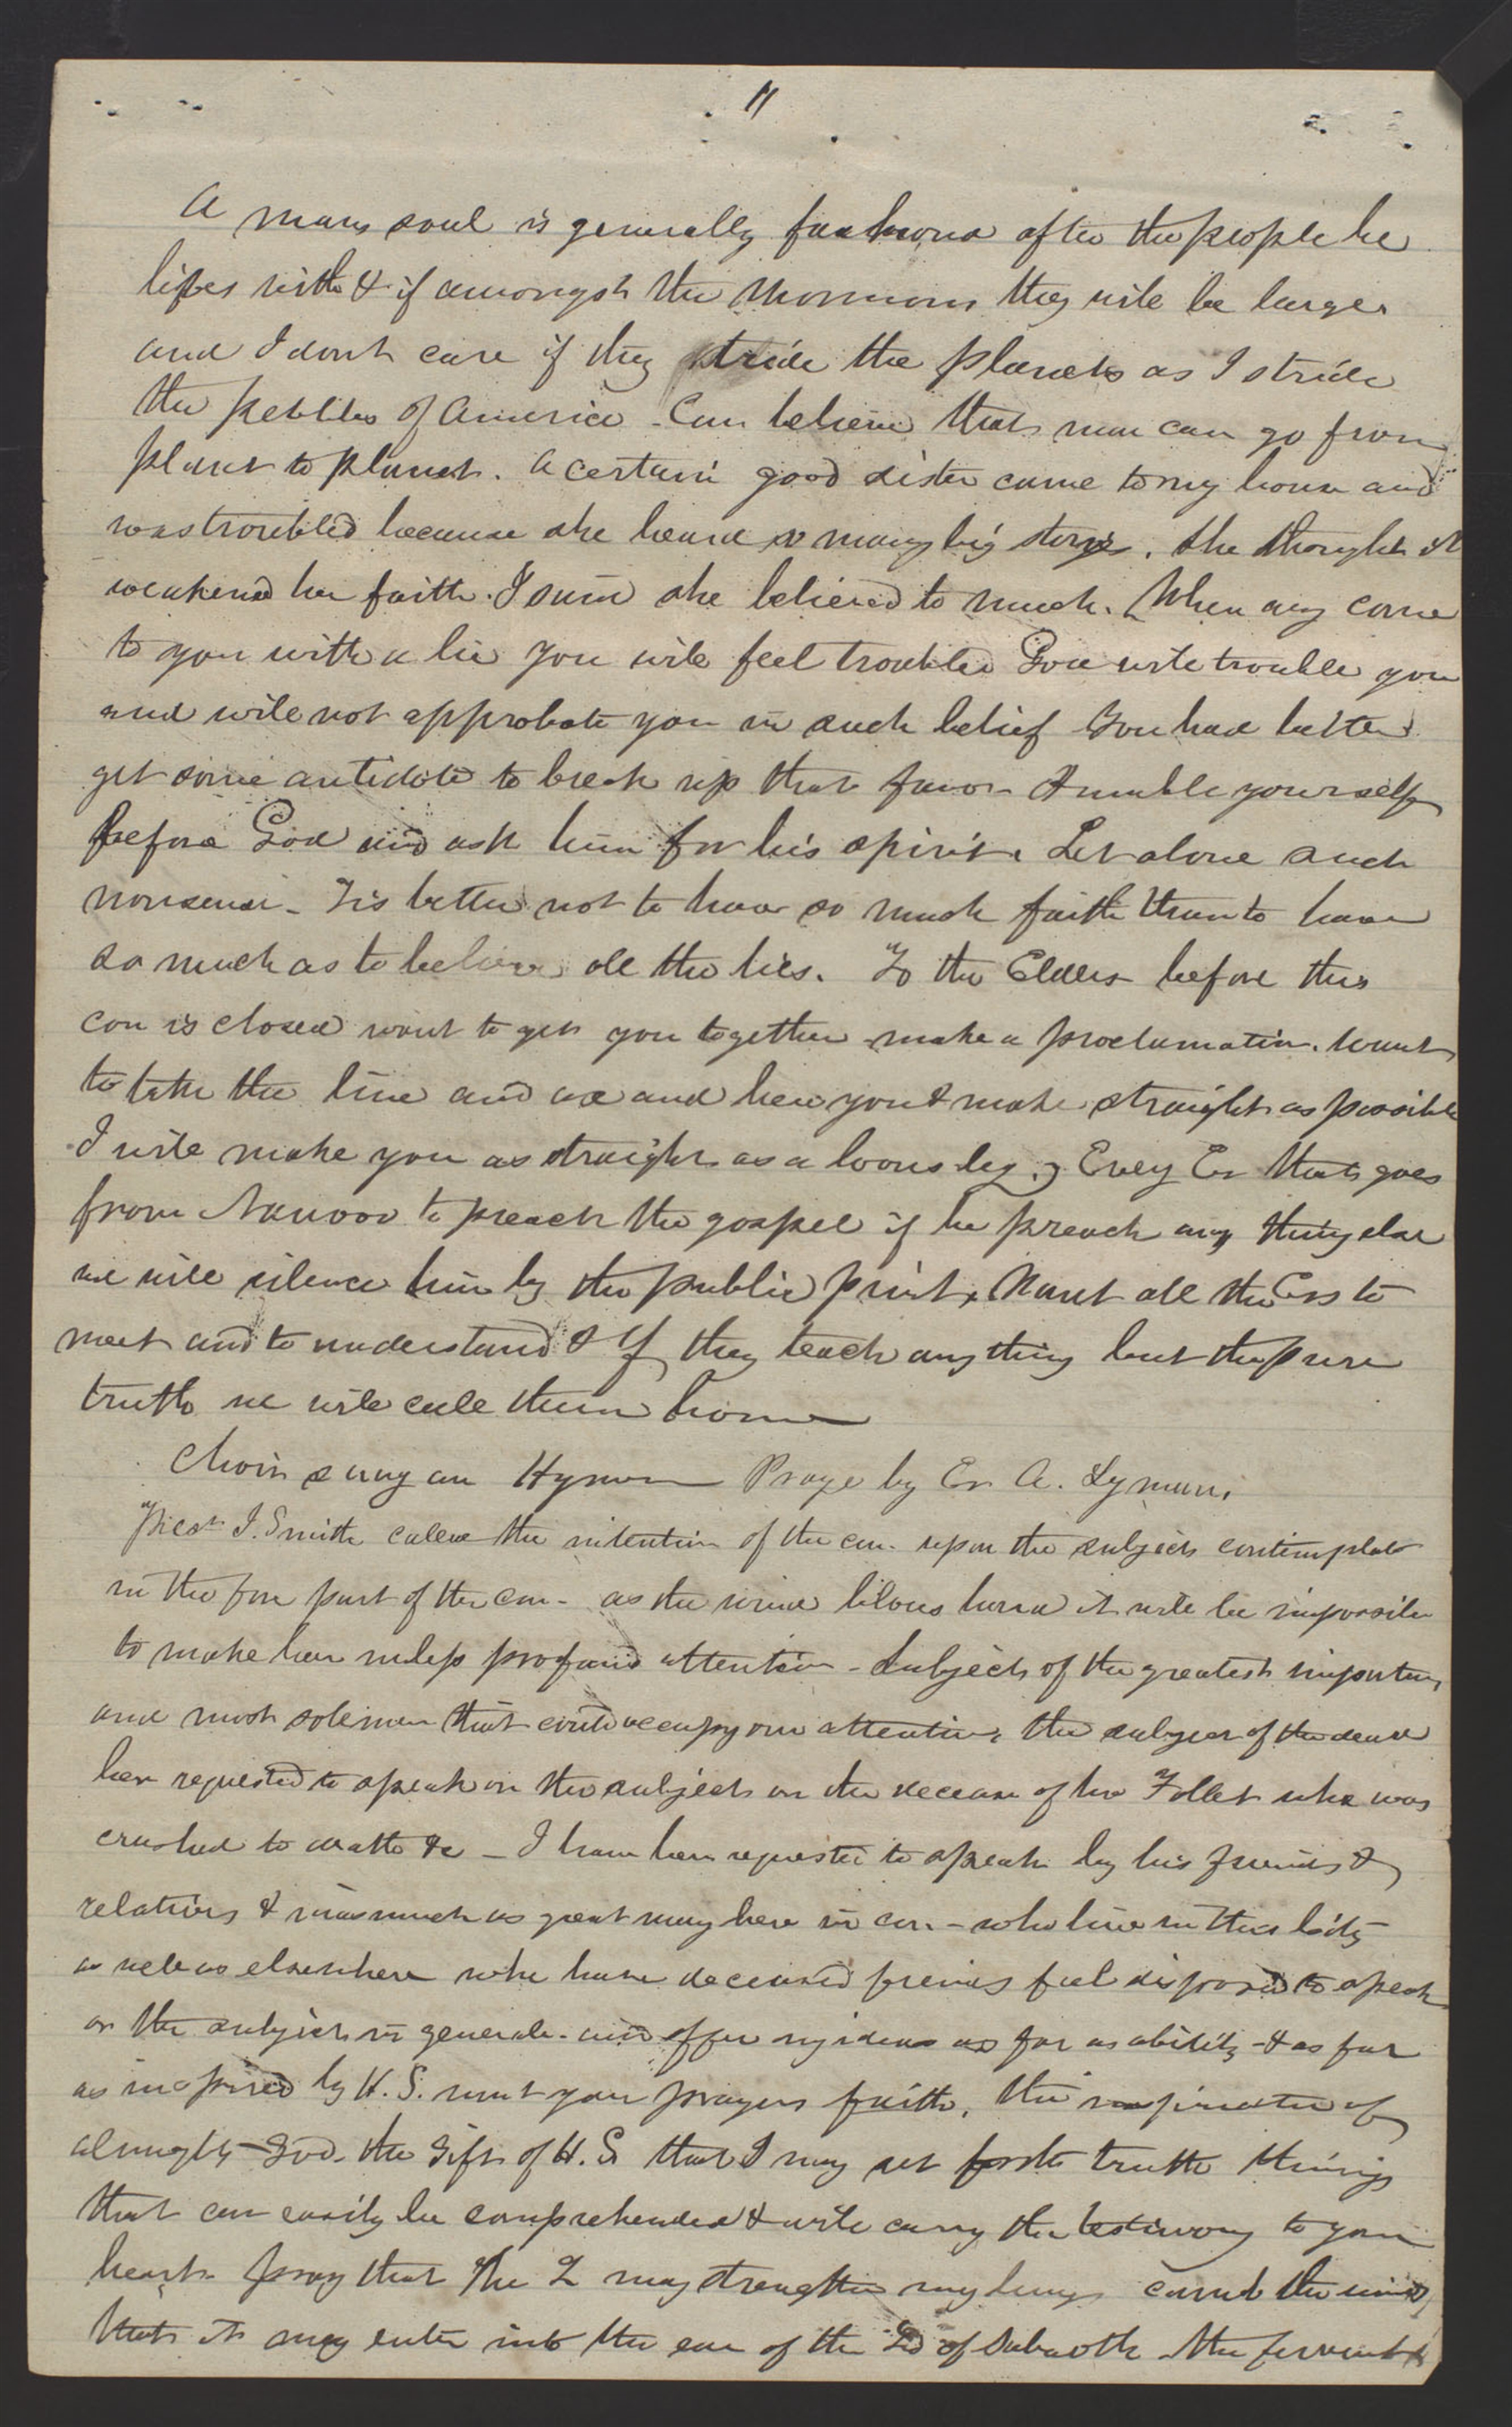 11
A mans soul is generally fashiond after the people he
lives with & if amongst the Mormons they will be large
and I dont care if they stride the planets as I stride
the pebbles of America - Can believe that man can go from
planet to planet. A certain good sister came to my house and
was troubled because she heard so many big storys. She thought it
weakened her faith. I said she believed to much. When any come
to you with a lie you will feel troubled God will trouble you
and will not approbate you in such belief You had better
get some antidote to break up that & umble yourself
before God and ask him for his spirit. Let alone such
nonsense - Tis better not to have so much faith than to have
so much as to believe all the lies. To the Elders before this
con is closed want to get you together make a proclamation. want
to take the line and ax and hew you & make straight as possible
I will make you as straight as a loons leg. Every Er that goes
from Nauvoo to preach the gospel if he preach any thing else
we will silence him by the public print. Want all the Ers to
meet and to understand & if they teach anything but the pure
truth we will call them home
Choir sung an Hymn Praye by Er A. Lyman.
Prest J. Smith called the attention of the con. upon the subject contemplated
in the fore part of the con - as the wind blows hard it will be impossible
to make hear unless profound attention - Subject of the greatest importance
and most solemn that could occupy our attention, the subject of the dead
been requested to speak on the subject on the decease of bro Follet who was
crushed to death &c - I have been requested to speak by his friends &
relatives & inasmuch as great many here in con. - who live in this City
as well as elsewhere who have deceased friends feel disposed to speak
on the subject in general - and offer my ideas as far as ability - & as far
as inspired by H. S. want your prayers faith, the inspiration of
almighty God. the Gift of H. S that I may set forth truth things
that can easily be comprehended & will carry the testimony to your
hearts pray that the L may strengthen my lungs the winds
that it may enter into the ear of the Ld of Sabaoth - the fervent